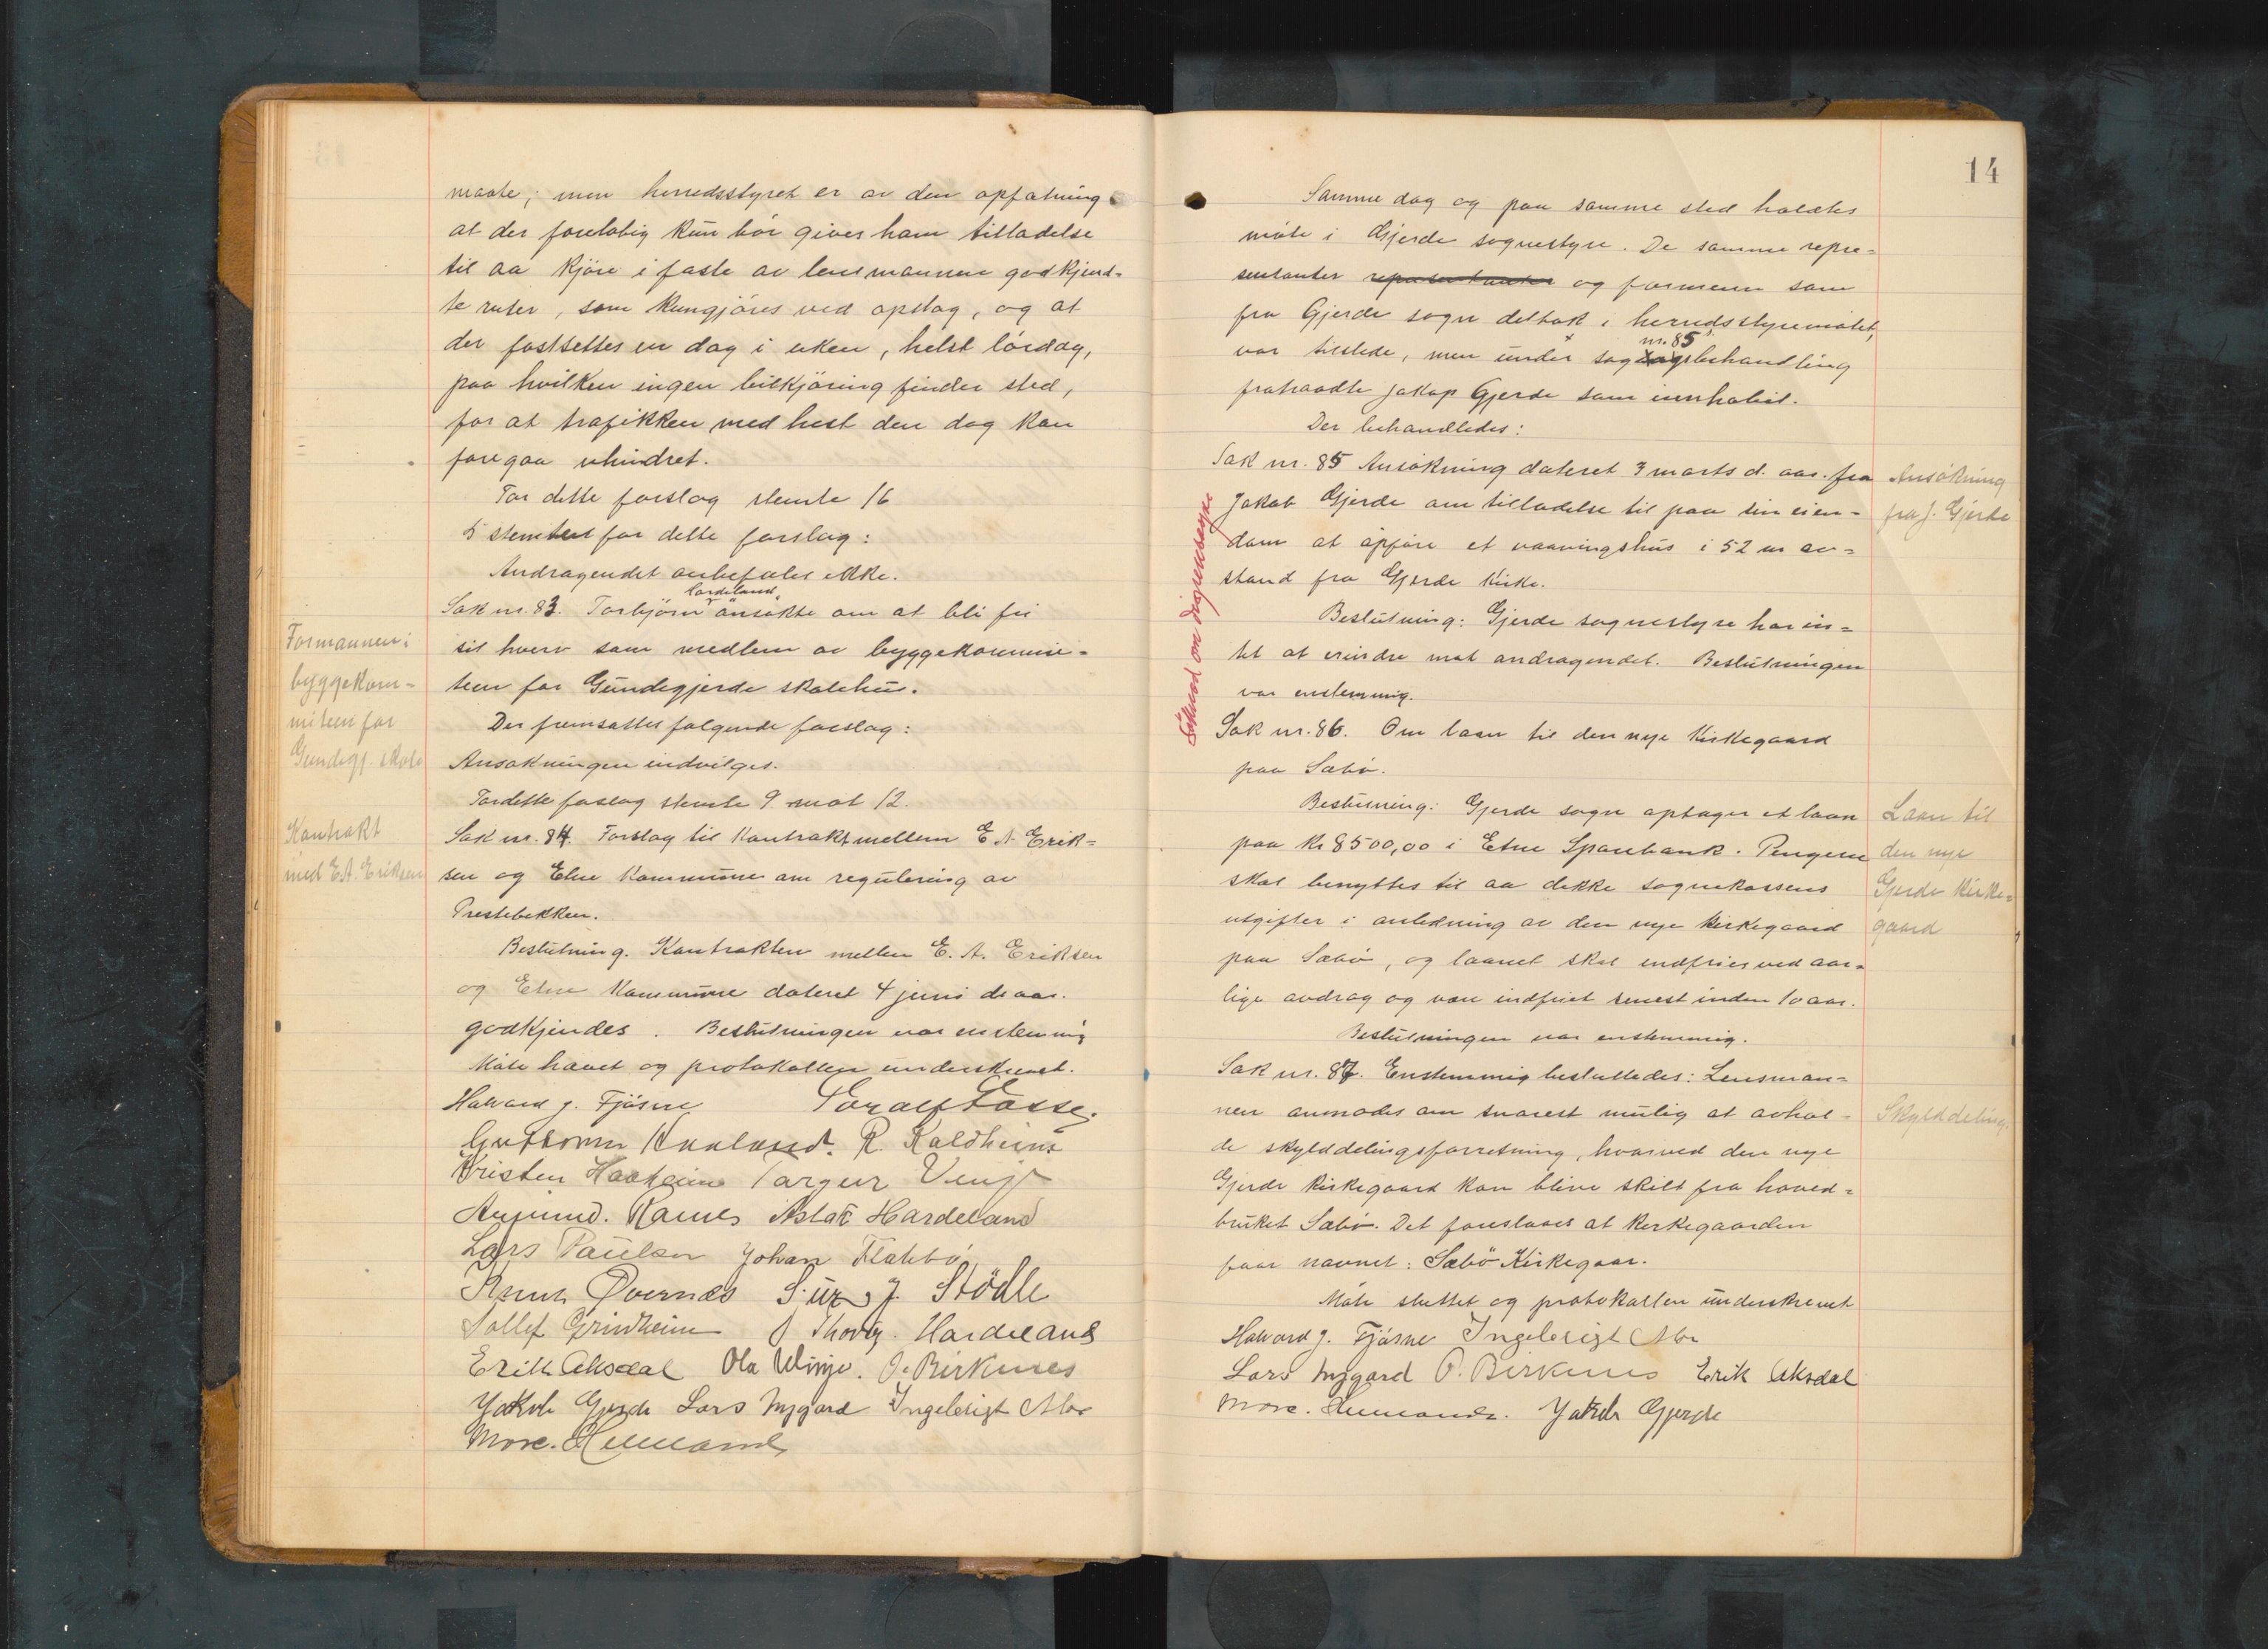 maate; men herredsstyret er av den opfatning
at der foreløbig kun bør gives ham tilladelse
til aa kjøre i faste av lensmannen godkjend-
te ruter, som kungjøres ved opslag, og at
der fastsettes en dag i uken, helst lørdag,
paa hvilken ingen bilkjøring finder sted,
for at trafikken med hest den dag kan
foregaa uhindret.
For dette forslag stemte 16
5 stemte for dette forslag:
Andragendet anbefales ikke.
Sak nr. 83. Torbjørn Lordeland ansøkte om at bli fri
sit hverv som medlem av byggekommi-
teen for Gundegjerde skolehus.
Der fremsattes følgende forslag:
Ansøkningen indvilges.
For dette foslag stemte 9 mot 12.
Sak nr. 84. Forslag til Kontrakt mellem E A Erik-
sen og Etne Kommune om regulering av
Prestebekken.
Beslutning. Kontrakten mellem E. A. Eriksen
og Etne Kommune dateret 4 juni d. aar.
godkjendes. Beslutningen var enstemmig
Møte hævet og protokollen underskrevet.
Halvard J. Fjøsne Toralf Fosse.
Guttormn Haaland. R. Kaldheim
Kristen Haaheim Torger Vinje
Amund. Ramnes Aslak Hardeland
Lars Paulsen Johan Flatebø
Knut Øvernes Sjur J. Stødle
Tollef Grindheim J Thorbj. Hardeland
Erik Aksdal Ola Vinje. O. Birknes
Jakob Gjerde Lars Nygard Ingebrigt Mo
Mons.
Formannen i
byggekom-
miteen for
Gundegj. skole
Kontrakt
med E.A. Eriksen
14
Samme dag og paa samme sted holdtes
møte i Gjerde sognestyre. De samme repre-
sentanter representanter og formenn som
fra Gjerde sogn deltok i herredsstyremøtet,
var tilstede, men under sag nr. 85 behandling
fratraadte Jakop Gjerde som innhabil.
Der behandledes:
Sak nr. 85 Ansøkning dateret 3 marts d. aar. fra
Jakob Gjerde om tilladelse til paa sin eien-
dom at opføre et vaaningshus i 52 m av-
stand fra Gjerde kirke.
Beslutning: Gjerde sognestyre har in-
tet at erindre mot andragendet. Beslutningen
var enstemmig.
Sak nr. 86. Om laan til den nye Kirkegaard
paa Sæbø.
Beslutning: Gjerde sogn optager et laan
paa Kr 8500,00 i Etne Sparebank. Pengene
skal benyttes til aa dekke sognekassens
utgifter i anledning av den nye kirkegaard
paa Sæbø, og laanet skal indfries ved aar-
lige avdrag og være indfriet senest inden 10 aar.
Beslutningen var enstemmig.
Sak nr. 87. Enstemmig besluttedes: Lensman-
nen anmodes om snarest mulig at avhol-
de skylddelingsforretning, hvorved den nye
Gjerde kirkegaard kan blive skilt fra hoved-
bruket Sæbø. Det foreslaaes at kirkegaarden
faar navnet: Sæbø Kirkegaar.
Møte sluttet og protokollen underskrevet
Halvard J. Fjøsne Ingebrigt Mo
Lars Nygard O. Birknes Erik Aksdal
Mons. Jakob Gjerde
Ansøkning
fra J. Gjerde
Laan til
den nye
Gjerde kirke-
gaard
Skylddeling.